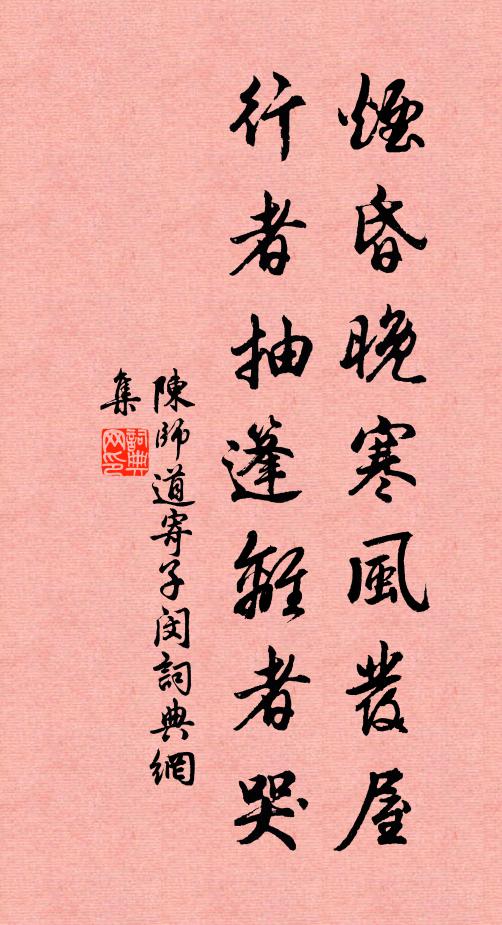 煙昏晚寒風發屋
行者抽蓬離者哭
陳師道寄子閔詞典網
集
詞典
网印